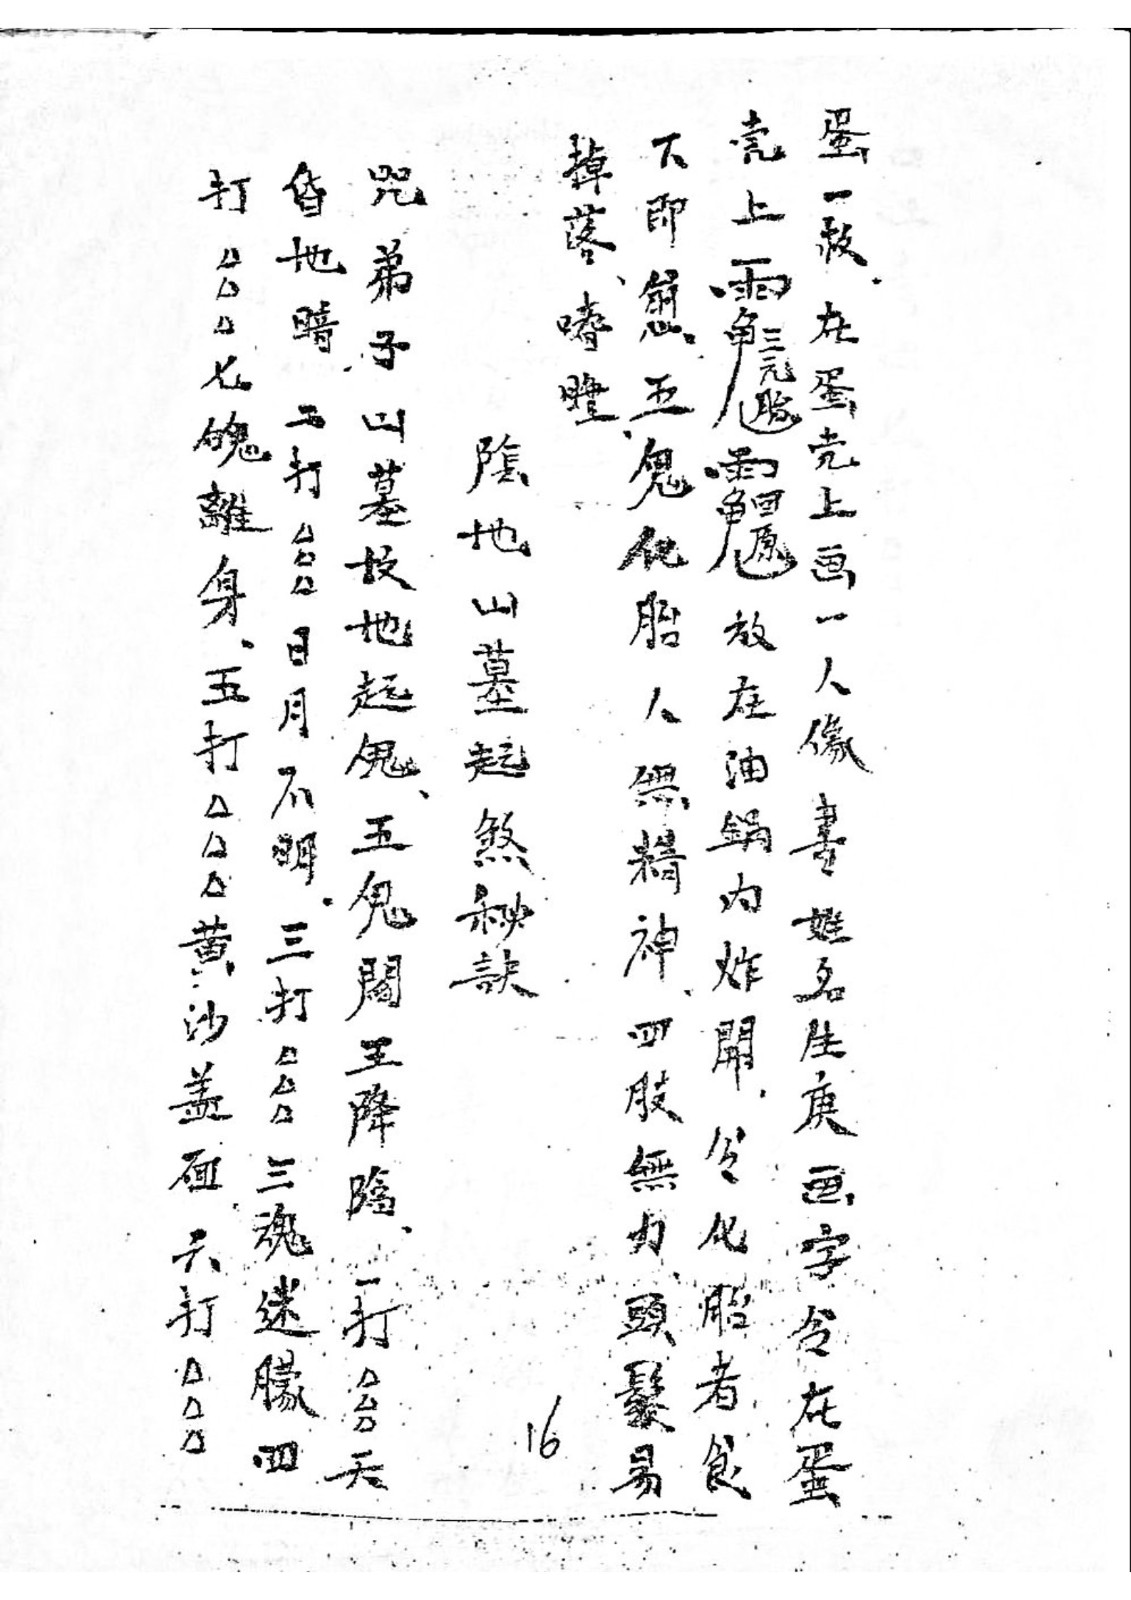 蛋一枚．在蛋壳上画一人像書姓名生庚画字令在蛋
壳上 三元胎 四原 放在油鍋内炸開．令化胎者食
下即愈、五鬼化胎人無精神、四肢無力、頭髮易
掉落、嗜睡、
陰地山墓起煞秘訣
咒弟子山墓坟地起鬼、五鬼閻王降臨、一打△△△天
昏地暗．二打△△△日月不明．三打△△△三魂迷朦四
打△△△七魄離身、五打△△△黄沙盖面、六打△△△
16